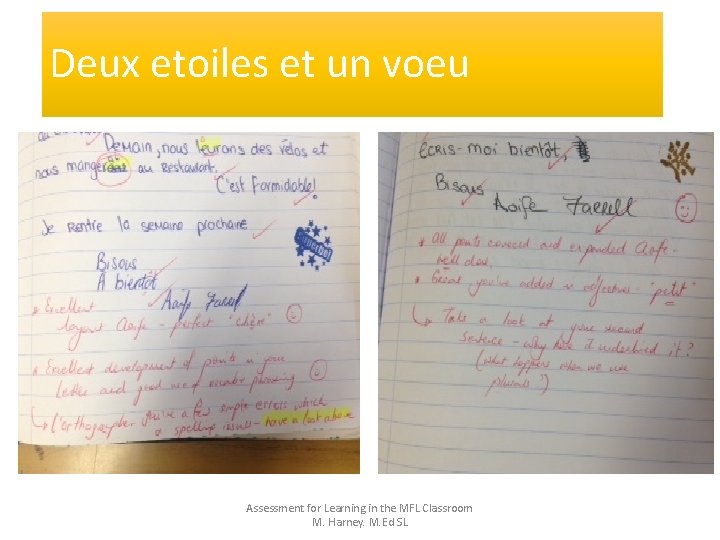 Deux etoiles et un voeu
Demain, nous leurons des vélos et
nous mangerons au Restaurant.
C'est Formidable!
Je Rentre la semaine prochaine
Bisous
À bientôt
Aoife Farrell
* Excellent
layout Aoife - perfect "chère"
* Excellent development of points in your
letter and good use of phrasing
L'orthographe - you've a few simple errors which
spelling issues - have a look above
Écris-moi bientôt,
Bisous
Aoife Farrell
* All points covered and expanded Aoife -
well done.
* Great you've added in adjectives - "petit"
Take a look at your second
sentence - why have I underlined it?
(what happens when we use
plurals?)
Assessment for Learning in the MFL Classroom
M. Harney. M.Ed SL